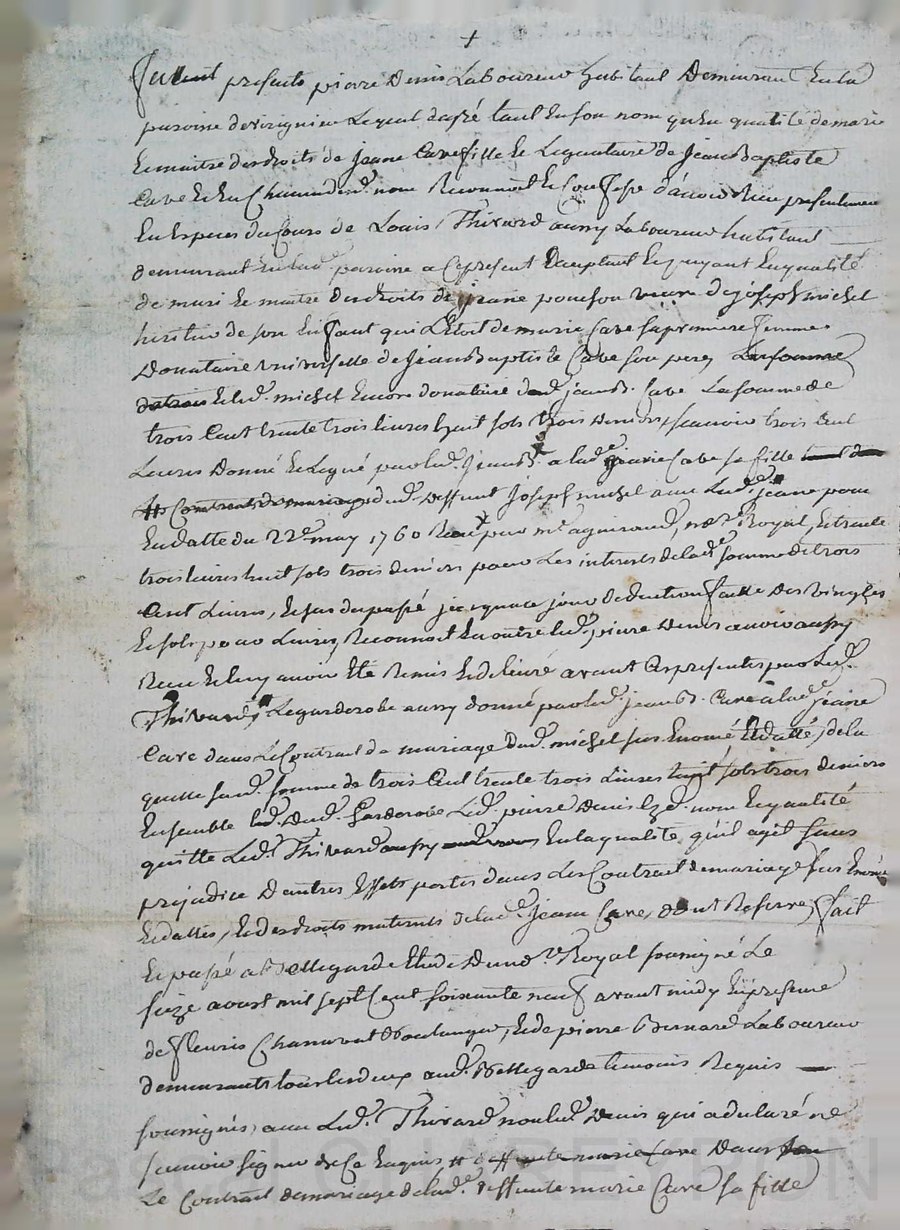 +
Furent presents pierre Denis Laboureur habitant Demeurant En la
paroisse de virignieu Lequel de gré tant En son nom qu'en qualité de marie
Et maitre des droits de Jeane Cave fille Et Legataire de Jean Baptiste
Cave Et En Chacun desd. nom Reconnoit Et Confesse d'avoir Recu presentement
En Especes du Cours de Louis Thivard aussy Laboureur habitant
demeurant En lad. paroisse a Ce present Acceptant Et payant En qualité
de mari Et maitre des droits de jeane veuve de joseph michel
heritier de son Enfant qui Etoit de marie Cave sa premiere femme
Donataire universelle de Jean Baptiste Cave son pere, La somme
Et led. michel Encore donataire dud. jean B. Cave La somme de
trois Cent trente trois livres huit sols trois deniers, scavoir trois Cent
Livres Donné Et Legué par led. Jean B. a lad. Cave sa fille
Contract de mariage dud. deffunt Joseph michel avec Lad. jeane
En datte du 22e may 1760 Recu par me agniraud, nre Royal, Et trente
trois livres huit sols trois deniers pour Les interets de lad. somme de trois
Cent Livres, Echus du passé jusqu'a ce jour deduction faitte Des Vingt
Et sols pour Livres, Reconnoit En outre led. pierre Denis avoir aussy
Recu Et luy avoir Eté Remis Et delivré avant Ces presentes par Led.
Thivard, Le garderobe aussy donné par led. jean B. Cave a lad. Jeane
Cave dans Le Contract de mariage Dud. michel sus Enomé Et datté, de la
quelle susd. somme de trois Cent trente trois Livres huit sols trois deniers
Ensemble Dud. Garderobe Led. pierre Denis Ezd. nom Et qualité
quitte Led. Thivard aussy En la qualité qu'il agit sans
prejudice D'autres Effets portés dans Led. Contract de mariage sus Enomé
Et datté, Et des droits maternels de lad. Jeane Cave, dont Reserve, fait
Et passé a Bellegarde Etude Du nre Royal soussigné Le
seize aoust mil sept Cent soixante neuf avant midy En presence
de fleuris Boulanger, Et de pierre Bernard Laboureur
demeurants tous les deux aud. Bellegarde temoins Requis
soussignés, avec Led. Thivard non led. Denis qui a declaré ne
scavoir signer de Ce Enquis # deffunte marie Cave Dans
Le Contract de mariage de lad. deffunte marie Cave sa fille